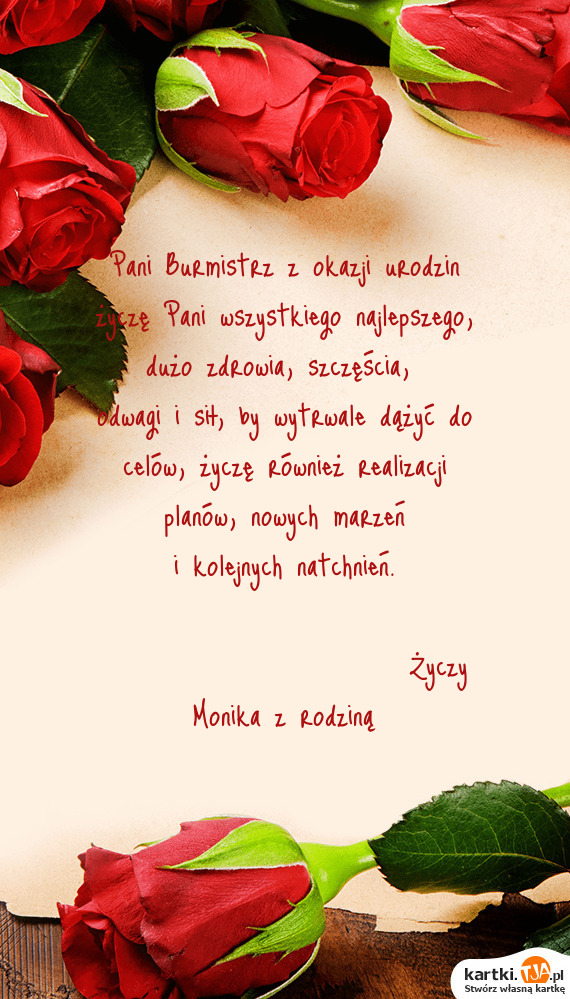 Pani Burmistrz z okazji urodzin
życzę Pani wszystkiego najlepszego,
dużo zdrowia, szczęścia,
odwagi i sił, by wytrwale dążyć do
celów, życzę również realizacji
planów, nowych marzeń
i kolejnych natchnień.
Życzy
Monika z rodziną
kartki.TJA.pl
Stwórz własną kartkę